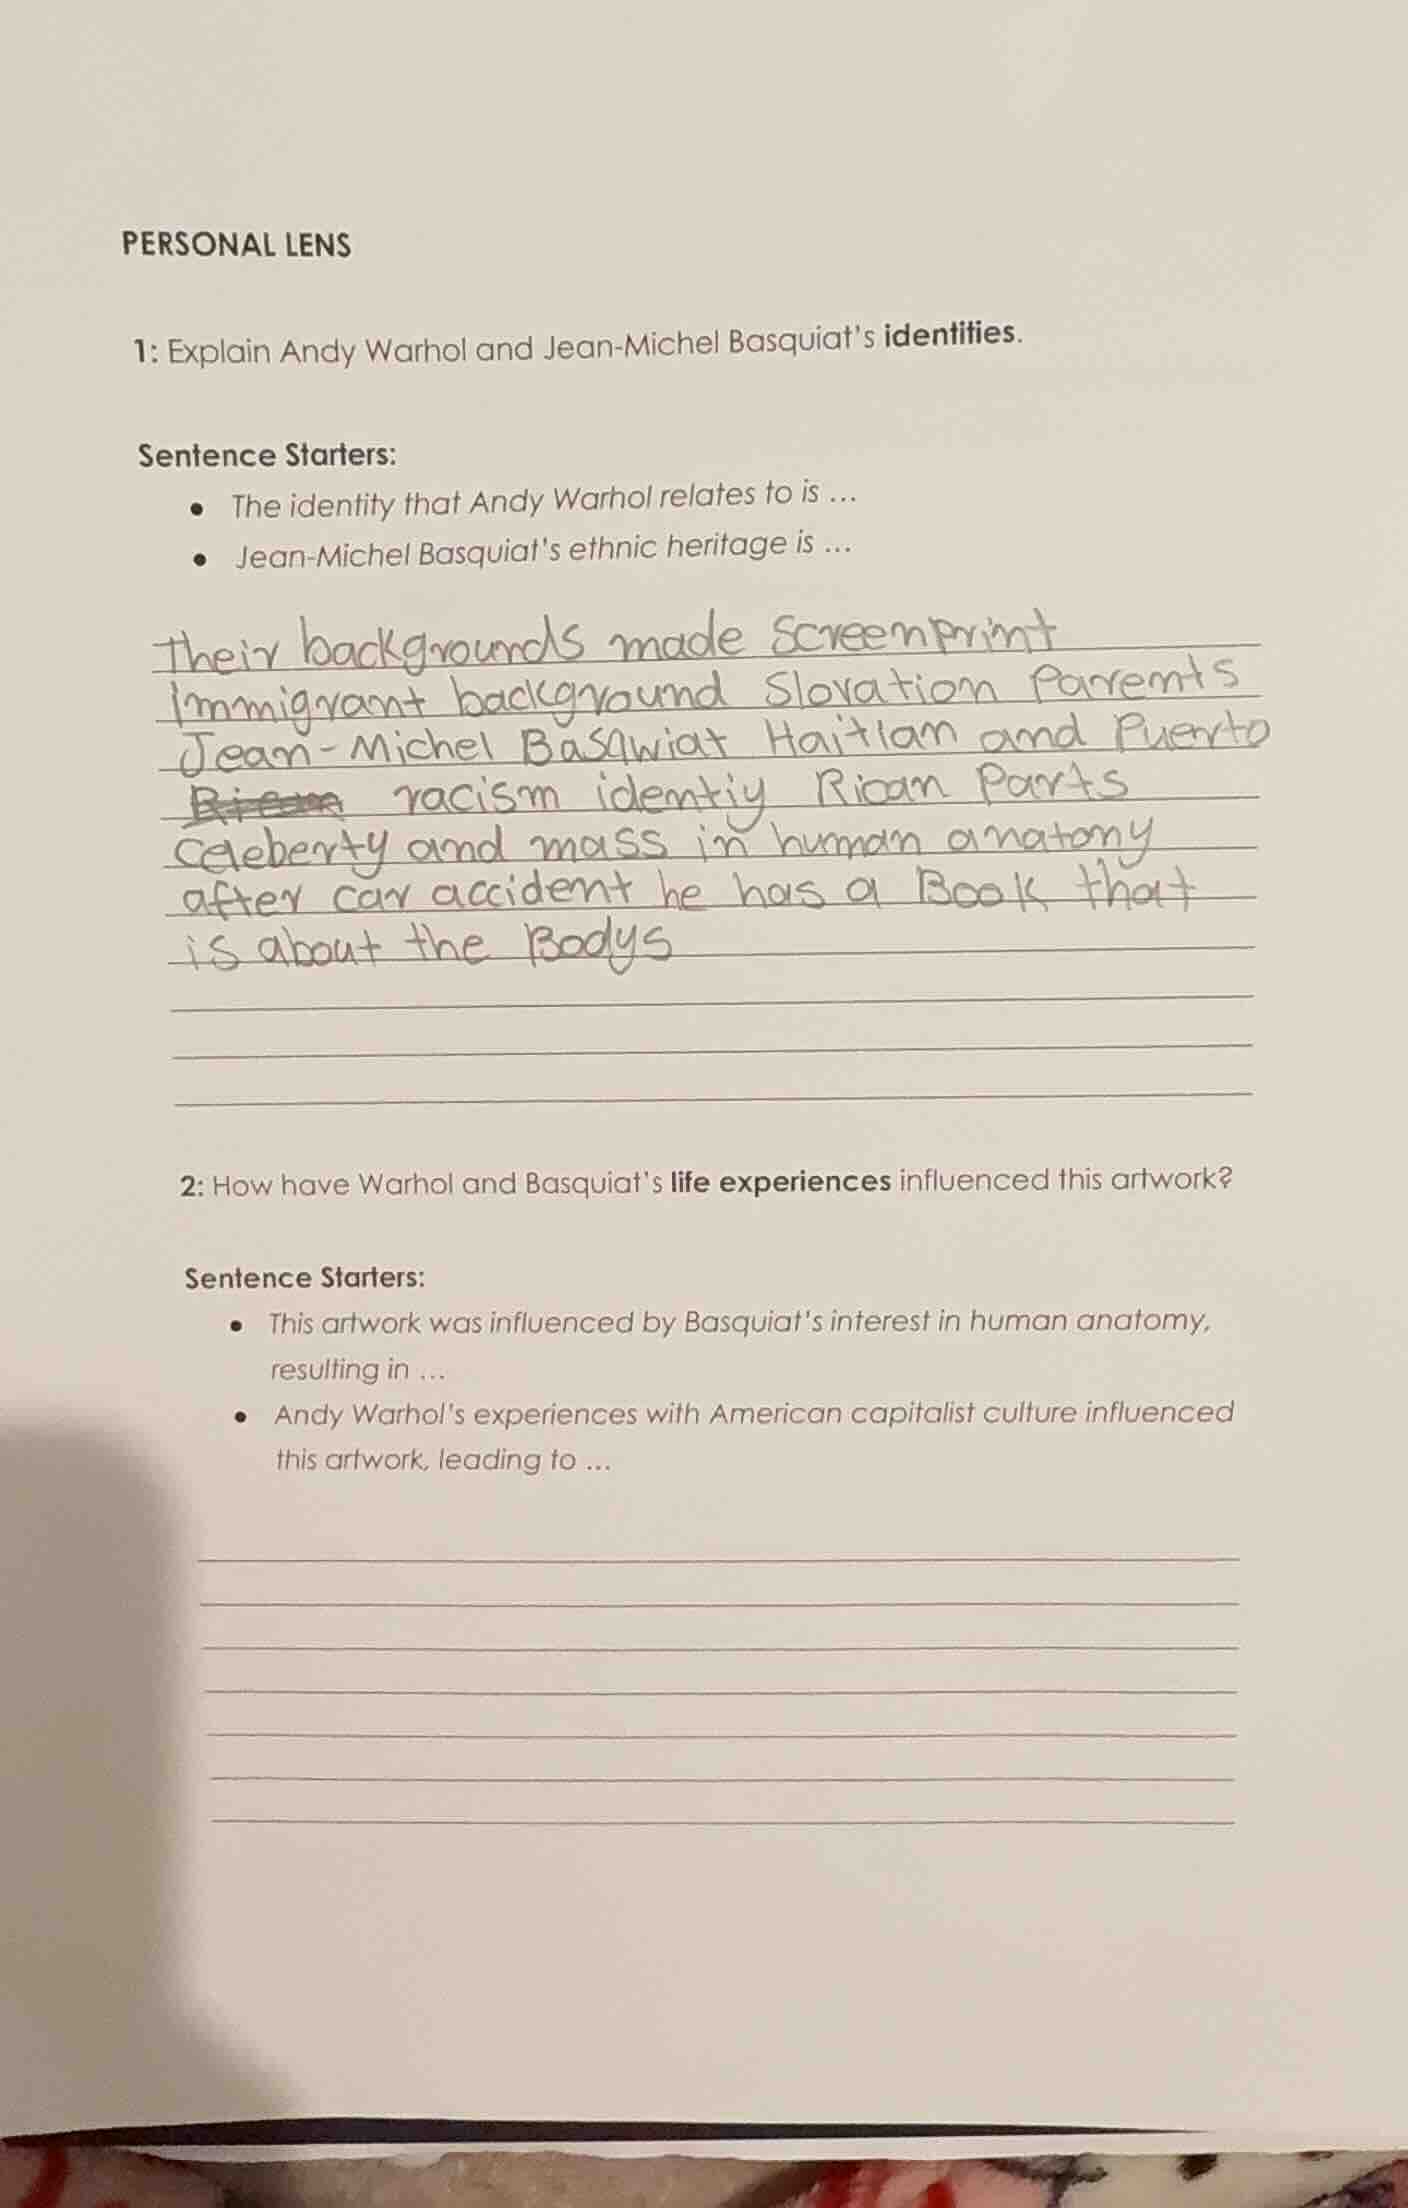 PERSONAL LENS
1: Explain Andy Warhol and Jean-Michel Basquiat's identities.
Sentence Starters:
• The identity that Andy Warhol relates to is ...
• Jean-Michel Basquiat's ethnic heritage is ...
their backgrounds made Screenprint
Immigrant background Slovation Parents
Jean-Michel Basqwiat Haitlam and Puerto
racism identiy Rican Parts
Celeberty and mass in human anatomy
after car accident he has a Book that
is about the Bodys
2: How have Warhol and Basquiat's life experiences influenced this artwork?
Sentence Starters:
• This artwork was influenced by Basquiat's interest in human anatomy,
resulting in ...
• Andy Warhol's experiences with American capitalist culture influenced
this artwork, leading to ...